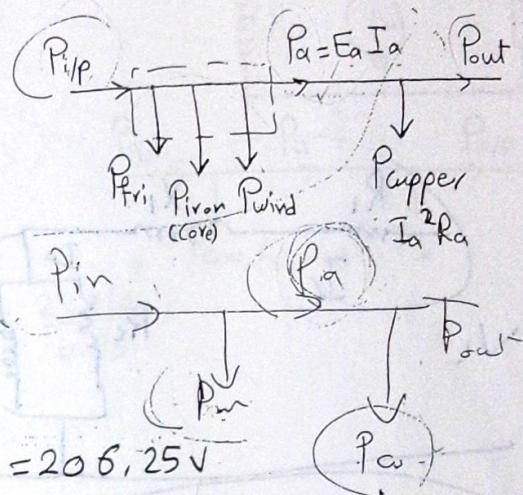 Pi/p Pa = Ea Ia Pout
Pfri Piron Pwind Pcupper
(Core) Ia²Ra
Pin Pa Pout
Pm Pcu
= 206,25 V